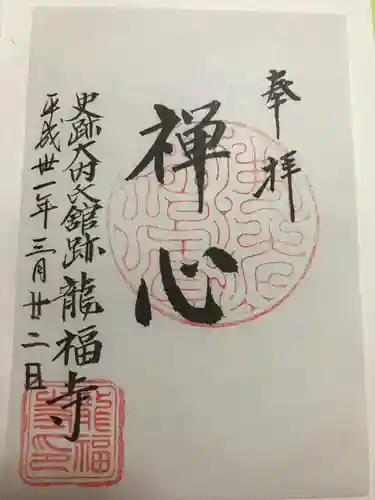 奉拝
禅心
史跡大内氏館跡龍福寺
平成卅一年三月廿二日
龍福
寺印